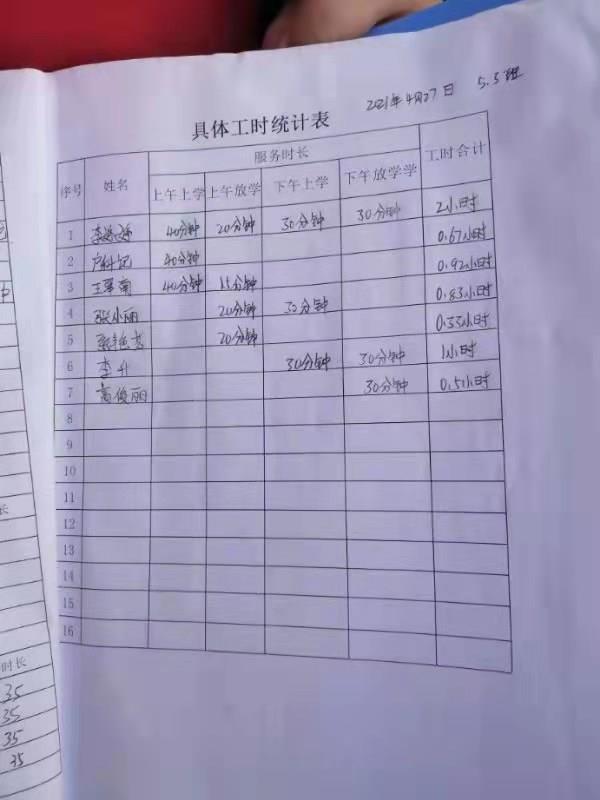 2021年4月27日 5.5班
具体工时统计表
序号 姓名 服务时长 工时合计
上午上学 上午放学 下午上学 下午放学学
1 40分钟 20分钟 30分钟 30分钟 2小时
2 40分钟 0.67小时
3 40分钟 15分钟 0.92小时
4 张小丽 20分钟 30分钟 0.83小时
5 20分钟 0.33小时
6 李升 30分钟 30分钟 1小时
7 高俊丽 30分钟 0.5小时
8
9
10
11
12
13
14
15
16
长
时长
35
35
35
35